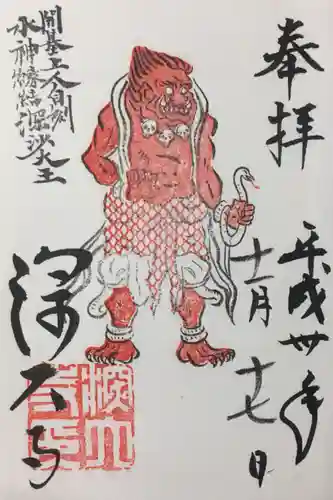 奉拝
平成卅年
十一月
十七日
開基上人自刻
水神深沙大王
深大寺